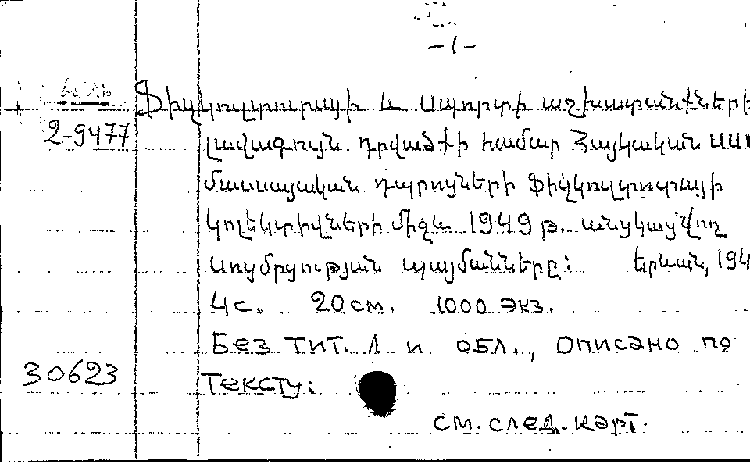 -1-
Ֆիզկուլտուրայի և սպորտի աշխատանքների
2-9477 լավագույն դրվածքի համար Հայկական ՍՍՌ
մասսայական դպրոցների ֆիզկուլտուրայի
կոլեկտիվների միջև 1949 թ. անցկացվող
սոցմրցության պայմանները: Երևան, 194
4с. 20см. 1000 экз.
Без тит. л и обл., описано по
30623 тексту:
см. след. карт.